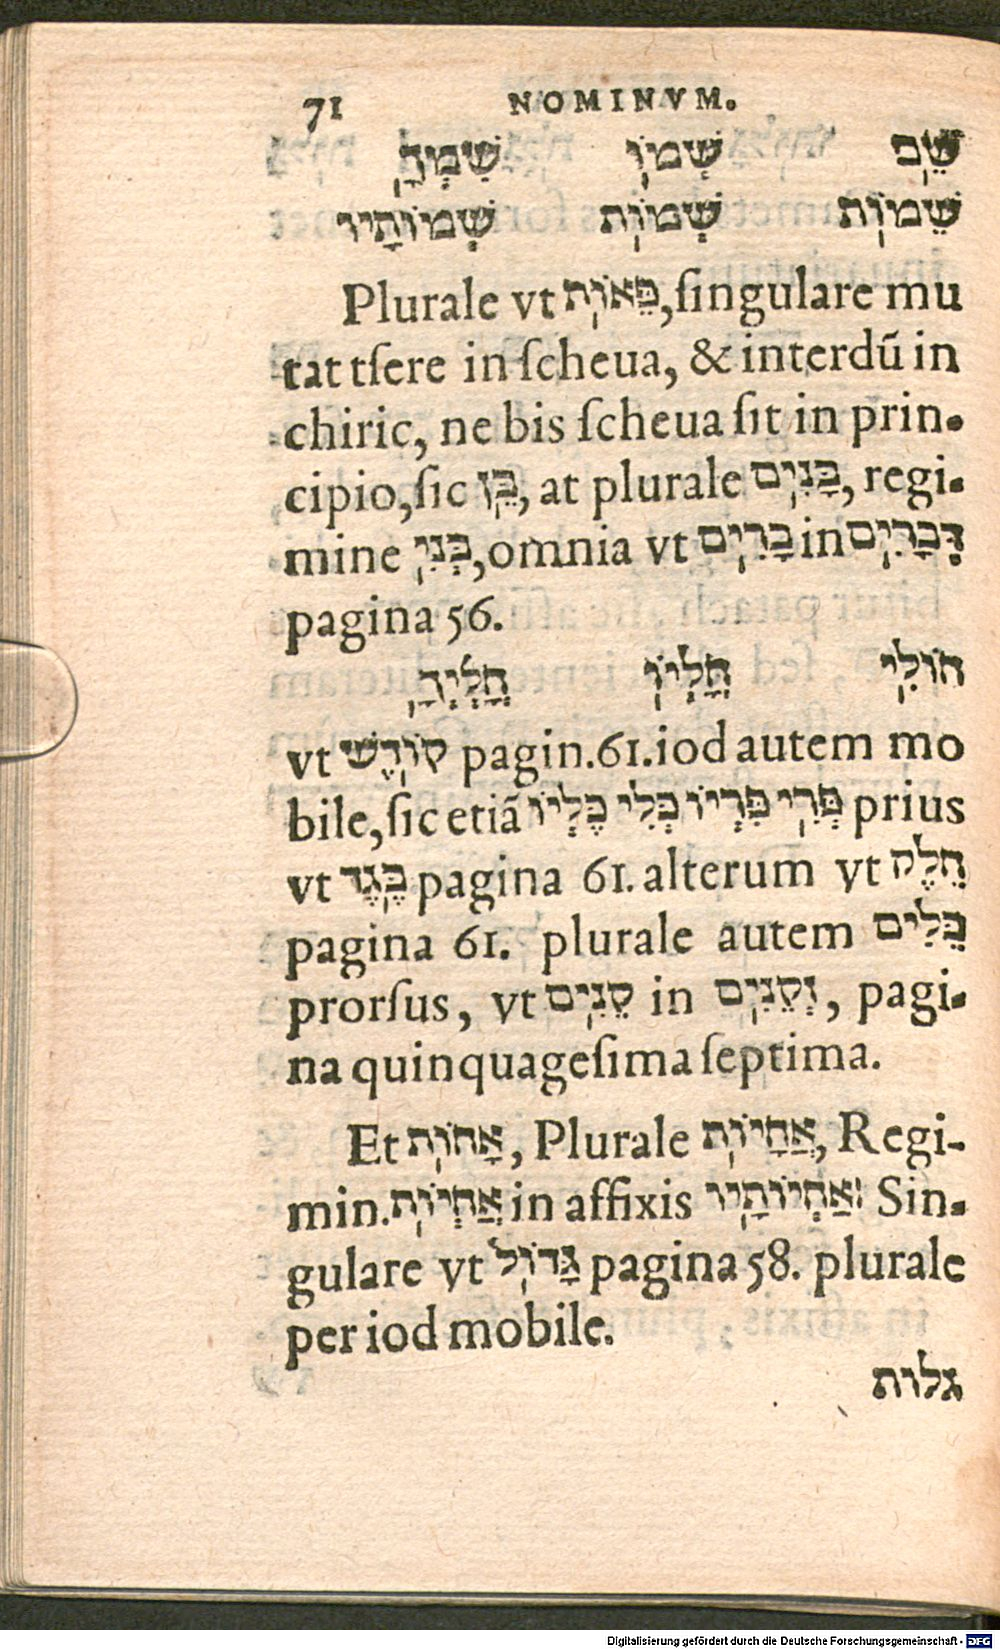 71 NOMINVM.
שֵׁם שְׁמוֹ שִׁמְךָ
שֵׁמוֹת שְׁמוֹת שְׁמוֹתָיו
Plurale vt פֵּאוֹת, ſingulare mu
tat tſere in ſcheua, & interdũ in
chiric, ne bis ſcheua ſit in prin-
cipio, ſic בֵּן, at plurale בָּנִים, regi-
mine בְּנֵי, omnia vt בָרִים in דָּבָרִים
pagina 56.
חוֹלִי חֳלְיוֹ חָלְיְךָ
vt קוֹדֶשׁ pagin. 61. iod autem mo
bile, ſic etiã פְּרִי פִּרְיוֹ כְּלִי כֶּלְיוֹ prius
vt בֶּגֶד pagina 61. alterum vt חֵלֶק
pagina 61. plurale autem כֵּלִים
prorſus, vt קֵנִים in זְקֵנִים, pagi-
na quinquageſima ſeptima.
Et אָחוֹת, Plurale אֲחָיוֹת, Regi-
min. אַחְיוֹת in affixis אַחְיוֹתָיו: Sin-
gulare vt גָּדוֹל pagina 58. plurale
per iod mobile.
גלות
Digitalisierung gefördert durch die Deutsche Forschungsgemeinschaft - DFG